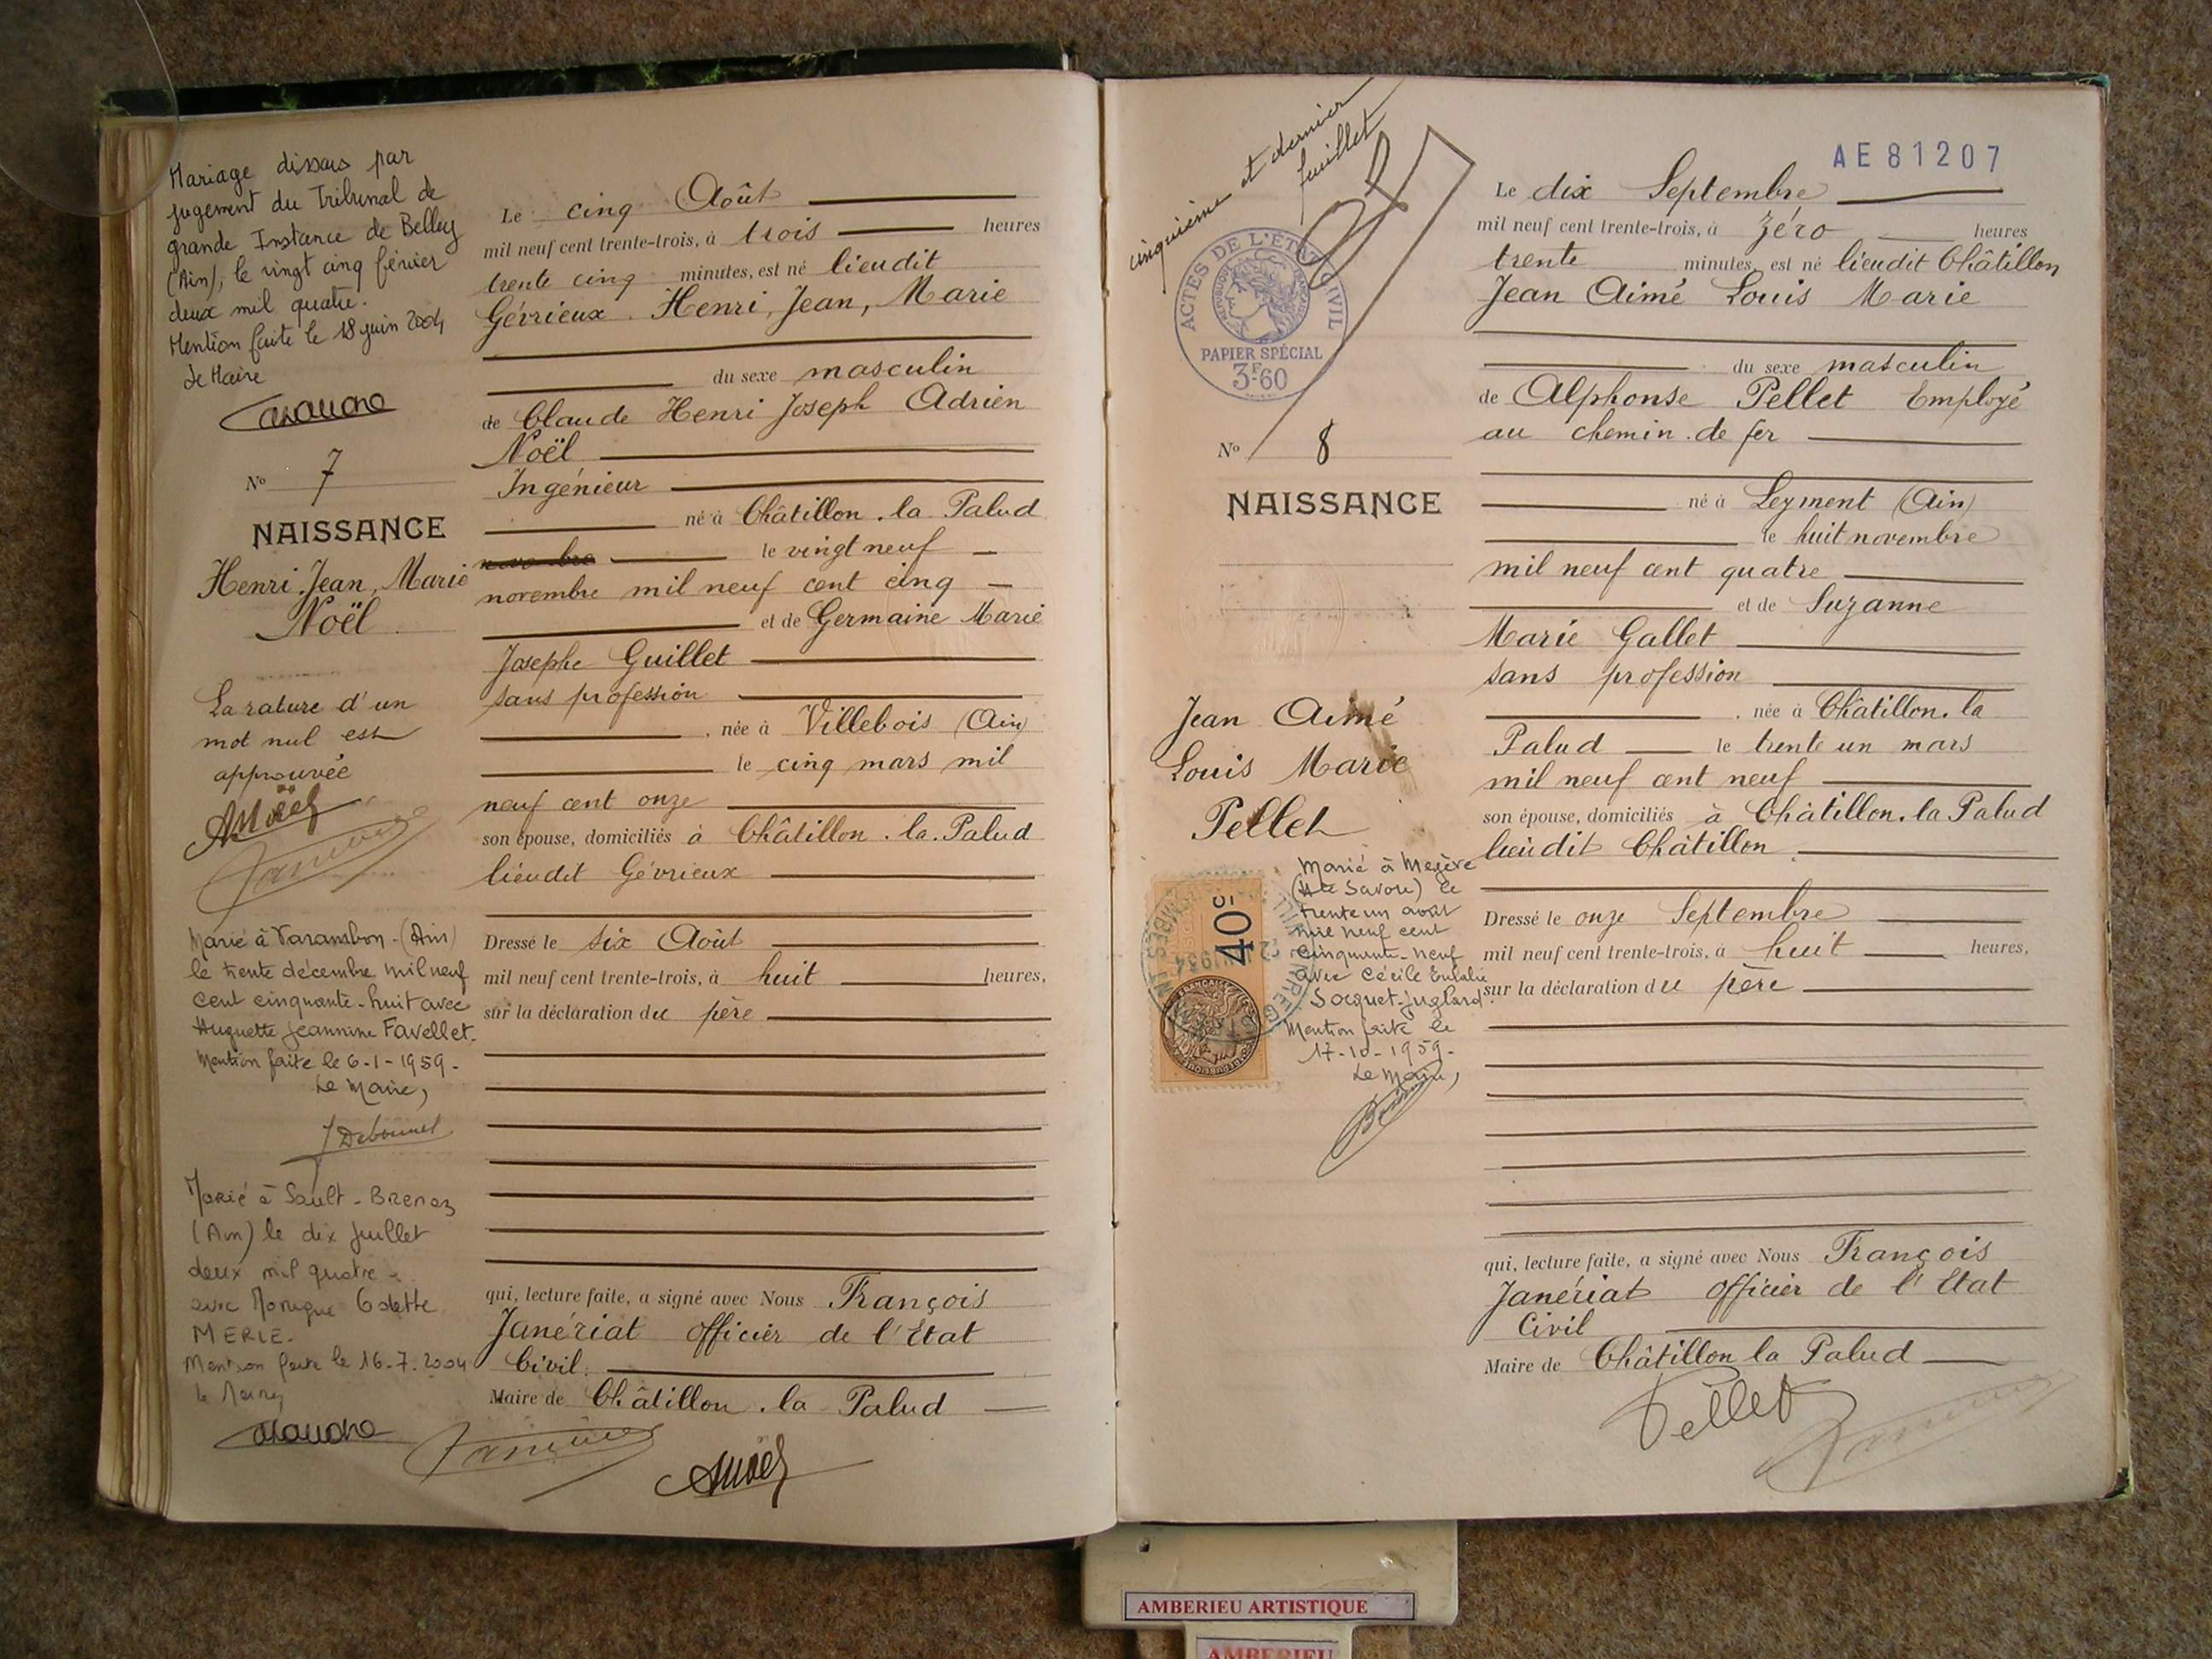 Mariage dissous par
jugement du Tribunal de
grande Instance de Belley
(Ain), le vingt cinq février
deux mil quatre.
Mention faite le 18 juin 2004
Le Maire
N° 7
NAISSANCE
Henri, Jean, Marie
Noël
La rature d'un
mot nul est
approuvée
ANoël
Marié à Varambon (Ain)
le trente décembre mil neuf
cent cinquante-huit avec
Huguette Jeannine Favellet.
Mention faite le 6-1-1959.
Le Maire,
Marié à Sault-Brenaz
(Ain) le dix juillet
deux mil quatre
avec Monique Odette
MERLE.
Mention faite le 16.7.2004
le Maire
Le cinq Août
mil neuf cent trente-trois, à trois heures
trente cinq minutes, est né lieudit
Gévrieux. Henri, Jean, Marie
du sexe masculin
de Claude Henri Joseph Adrien
Noël
Ingénieur
né à Châtillon.la Palud
novembre le vingt neuf
novembre mil neuf cent cinq
et de Germaine Marie
Josephe Guillet
sans profession
, née à Villebois (Ain)
le cinq mars mil
neuf cent onze
son épouse, domiciliés à Châtillon.la.Palud
lieudit Gévrieux
Dressé le six Août
mil neuf cent trente-trois, à huit heures,
sur la déclaration du père
qui, lecture faite, a signé avec Nous François
Janériat officier de l'Etat
Civil.
Maire de Châtillon.la Palud
ANoël
cinquième et dernier
feuillet
ACTES DE L'ÉTAT CIVIL
PAPIER SPÉCIAL
3F.60
N° 8
NAISSANCE
Jean Aimé
Louis Marie
Pellet
40c
Marié à Megève
(Hte Savoie) le
trente un août
mil neuf cent
cinquante-neuf
avec Cécile Eulalie
Socquet-Juglard.
Mention faite le
17-10-1959.
Le Maire,
AE81207
Le dix Septembre
mil neuf cent trente-trois, à zéro heures
trente minutes, est né lieudit Châtillon
Jean Aimé Louis Marie
du sexe masculin
de Alphonse Pellet Employé
au chemin.de fer
né à Leyment (Ain)
le huit novembre
mil neuf cent quatre
et de Suzanne
Marie Gallet
sans profession
, née à Châtillon.la
Palud le trente un mars
mil neuf cent neuf
son épouse, domiciliés à Châtillon.la Palud
lieudit Châtillon
Dressé le onze Septembre
mil neuf cent trente-trois, à huit heures,
sur la déclaration du père
qui, lecture faite, a signé avec Nous François
Janériat officier de l'Etat
Civil
Maire de Châtillon la Palud
Pellet
AMBERIEU ARTISTIQUE
AMBERIEU